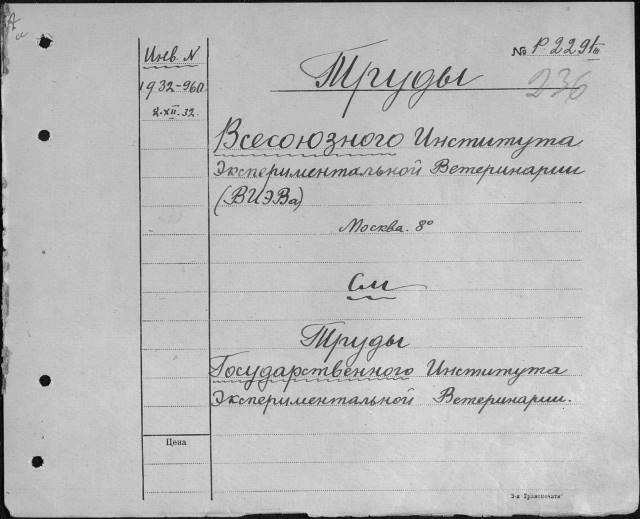 Инв. N
1932-960
2.XII.32.
№ Р-229
236
Труды
Всесоюзного Института
Экспериментальной Ветеринарии
(ВИЭВа)
Москва. 8°
См
Труды
Государственного Института
Экспериментальной Ветеринарии.
Цена